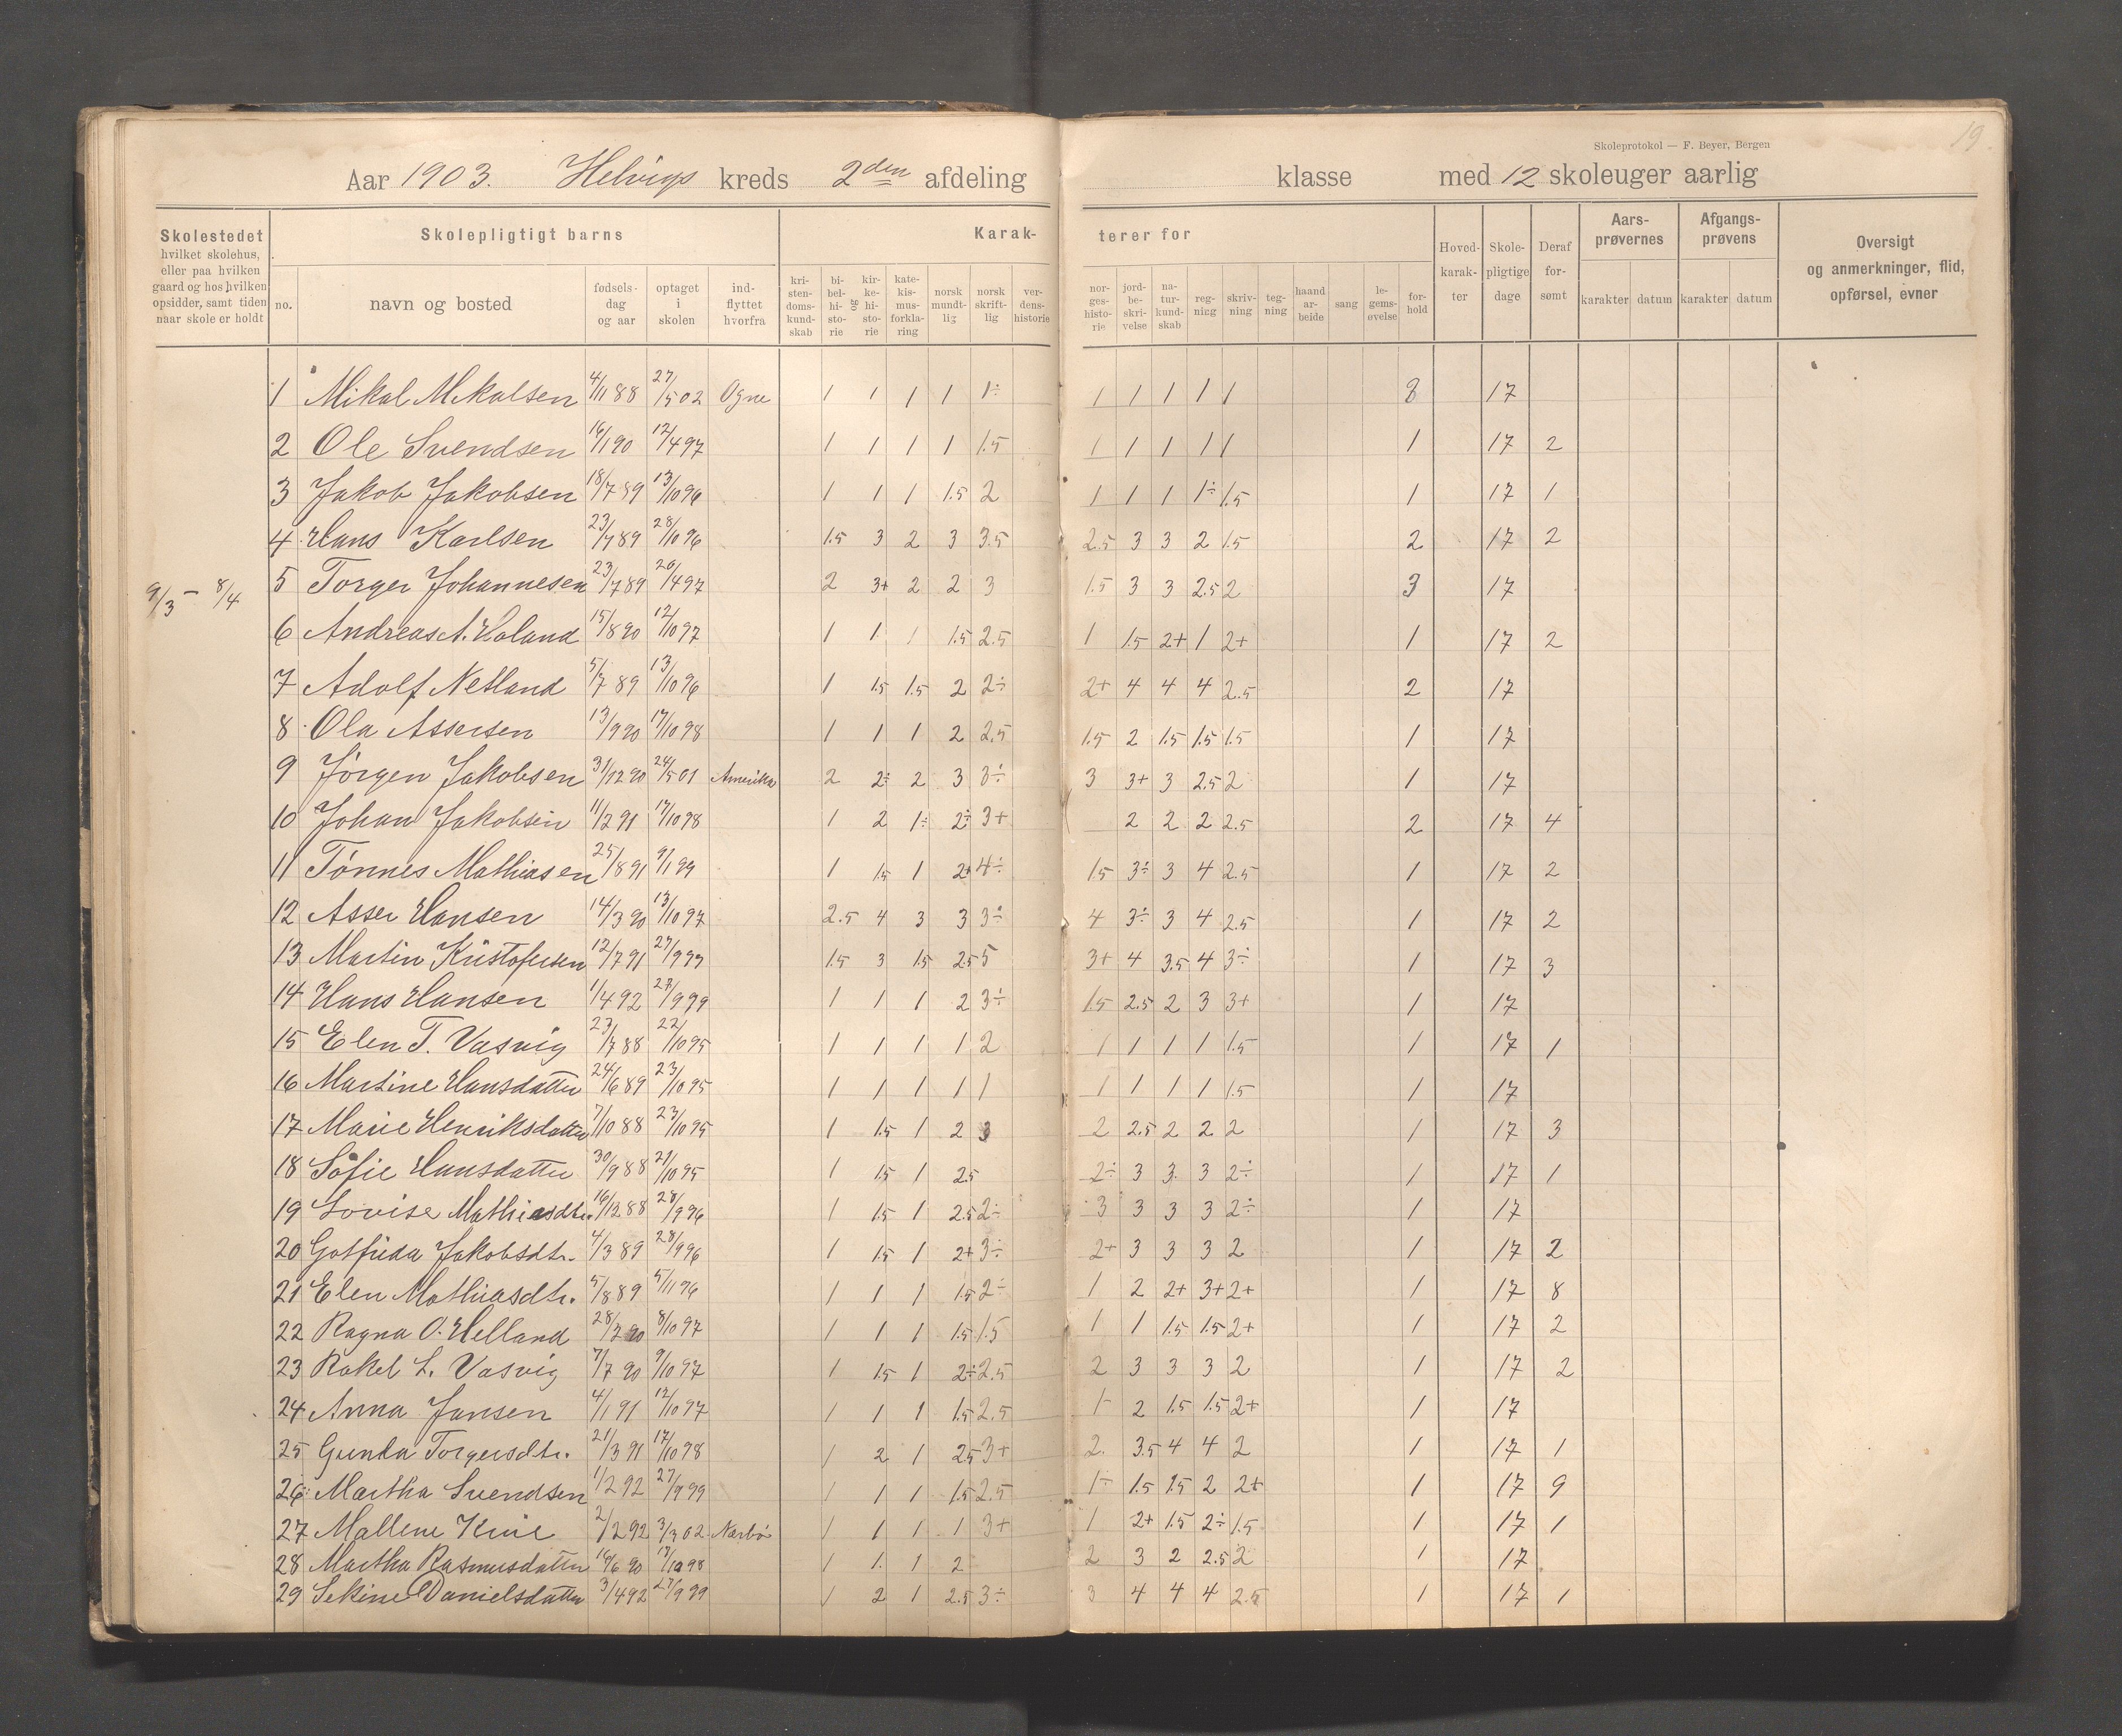 19
Skoleprotokol — F. Beyer, Bergen
Aar 1903. Helvigs kreds 2den afdeling klasse med 12 skoleuger aarlig
Skolestedet hvilket skolehus, eller paa hvilken gaard og hos hvilken opsidder, samt tiden naar skole er holdt
Skolepligtigt barns
Karakterer for
no. navn og bosted fødselsdag og aar optaget i skolen indflyttet hvorfra
kristendomskundskab bibelhistorie og kirkehistorie katekismusforklaring norsk mundtlig norsk skriftlig verdenshistorie
norgeshistorie jordbeskrivelse naturkundskab regning skrivning tegning haandarbeide sang legemsøvelse forhold
Hovedkarakter Skolepligtige dage Deraf forsømt
Aarsprøvernes karakter datum
Afgangsprøvens karakter datum
Oversigt og anmerkninger, flid, opførsel, evner
9/3 – 8/4
1 Mikal Mikalsen 4/11 88 27/5 02 Ogne 1 1 1 1 1÷ 1 1 1 1 1 3 17
2 Ole Svendsen 16/1 90 12/4 97 1 1 1 1 1.5 1 1 1 1 1 1 17 2
3 Jakob Jakobsen 18/7 89 13/10 96 1 1 1 1.5 2 1 1 1 1÷ 1.5 1 17 1
4 Hans Karlsen 23/7 89 28/10 96 1.5 3 2 3 3.5 2.5 3 3 2 1.5 2 17 2
5 Torger Johannesen 23/7 89 20/4 97 2 3+ 2 2 3 1.5 3 3 2.5 2 3 17
6 Andreas A. Holand 15/8 90 12/10 97 1 1 1 1.5 2.5 1 1.5 2+ 1 2+ 1 17 2
7 Adolf Netland 5/7 89 13/10 96 1 1.5 1.5 2 2÷ 2+ 4 4 4 2.5 2 17
8 Ola Assersen 13/9 90 17/10 98 1 1 1 2 2.5 1.5 2 1.5 1.5 1.5 1 17
9 Jørgen Jakobsen 31/12 90 24/5 01 Amerika 2 2÷ 2 3 3÷ 3 3+ 3 2.5 2 1 17
10 Johan Jakobsen 11/2 91 17/10 98 1 2 1÷ 2÷ 3+ 2 2 2 2.5 2 17 4
11 Tønnes Mathiasen 25/8 91 9/1 99 1 1.5 1 2+ 4÷ 1.5 3÷ 3 4 2.5 1 17 2
12 Asser Hansen 14/3 90 13/10 97 2.5 4 3 3 3÷ 4 3÷ 3 4 2.5 1 17 2
13 Martin Kristofersen 12/7 91 27/9 99 1.5 3 1.5 2.5 5 3+ 4 3.5 4 3÷ 1 17 3
14 Hans Hansen 1/4 92 27/9 99 1 1 1 2 3÷ 1.5 2.5 2 3 3+ 1 17
15 Elen T. Vasvig 23/7 88 22/10 95 1 1 1 1 2 1 1 1 1 1.5 1 17 1
16 Martine Hansdatter 24/6 89 23/10 95 1 1 1 1 1 1 1 1 1 1.5 1 17
17 Marie Henriksdatter 7/10 88 23/10 95 1 1.5 1 2 3 2 2.5 2 2 2 1 17 3
18 Sofie Hansdatter 30/9 88 21/10 95 1 1.5 1 2.5 2÷ 3 3 3 2÷ 1 17 1
19 Lovise Mathiasdtr. 16/12 88 28/9 96 1 1.5 1 2.5 2÷ 3 3 3 3 2÷ 1 17
20 Gotfrida Jakobsdtr. 4/3 89 28/9 96 1 1.5 1 2+ 3÷ 2+ 3 3 3 2 1 17 2
21 Elen Mathiasdtr. 5/8 89 5/11 96 1 1 1 1.5 2÷ 1 2 2+ 3+ 2+ 1 17 8
22 Ragna O. Helland 28/2 90 8/10 97 1 1 1 1.5 1.5 1 1 1.5 1.5 2+ 1 17 2
23 Rakel L. Vasvig 7/7 90 9/10 97 1 1.5 1 2÷ 2.5 2 3 3 3 2 1 17 2
24 Anna Jansen 4/1 91 12/10 97 1 1 1 1.5 2.5 1- 2 1.5 1.5 2+ 1 17
25 Gunda Torgersdtr. 21/3 91 17/10 98 1 2 1 2.5 3+ 2 3.5 4 4 2 1 17 1
26 Martha Svendsen 1/2 92 27/9 99 1 1 1 1.5 2.5 1÷ 1.5 1.5 2 2+ 1 17 9
27 Mallene 2/2 92 3/3 02 Nærbø 1 1 1 1 3+ 1 2+ 1.5 2÷ 1.5 1 17 1
28 Martha Rasmusdatter 16/6 90 17/10 98 1 1 1 2 2 3 2 2.5 2 1 17
29 Sekine Danielsdatter 3/4 92 27/9 99 1 2 1 2.5 3÷ 3 4 4 4 2.5 1 17 1